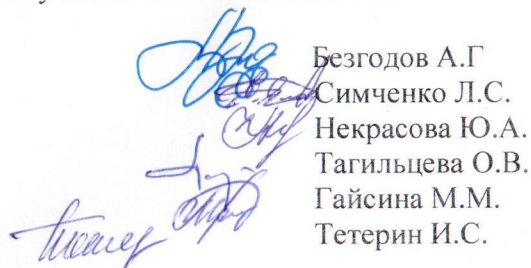 Безгодов А.Г
Симченко Л.С.
Некрасова Ю.А.
Тагильцева О.В.
Гайсина М.М.
Тетерин И.С.